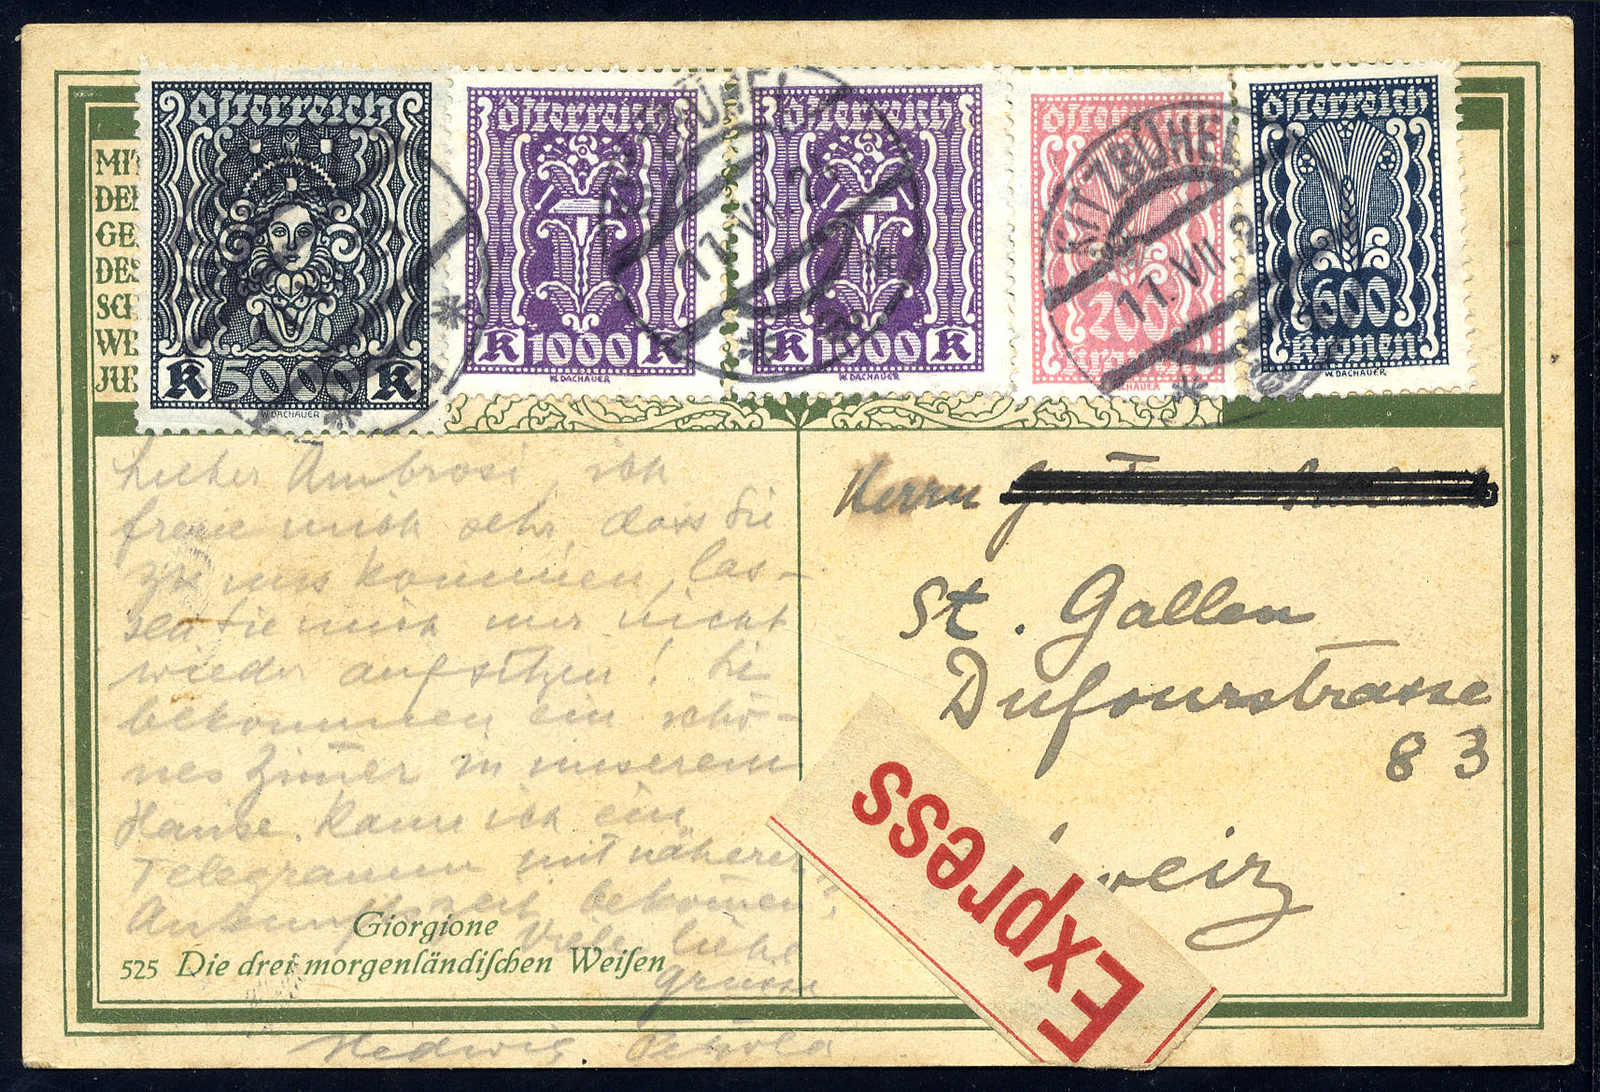 MIT
DER
GE
DES
SCH
WE
JUB
österreich
K 5000 K
W. DACHAUER
österreich
K 1000 K
W. DACHAUER
österreich
K 1000 K
W. DACHAUER
österreich
200
kronen
DACHAUER
österreich
600
kronen
W. DACHAUER
KITZBÜHEL
11.VII.2
KITZBÜHEL
11.VII.2
Lieber Ambrosi, ich
freue mich sehr, dass Sie
zu uns kommen, las-
sen Sie mich nur nicht
wieder aufsitzen! Sie
bekommen ein schö-
nes Zimer in unserem
Hause. Kann ich ein
Telegramm mit näherer
Ankunftszeit bekomen?
Viele liebe
Grüsse
Hedwig Petzold
Giorgione
525 Die drei morgenländiſchen Weiſen
Herrn
St. Gallen
Dufourstrasse
83
weiz
Express